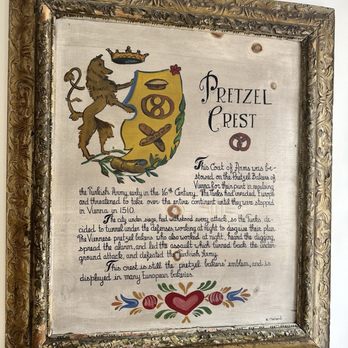 PRETZEL
CREST
This Coat of Arms was be-
stowed on the Pretzel Bakers of
Vienna for their part in repulsing
the Turkish Army early in the 16th Century. The Turks had invaded Europe
and threatened to take over the entire continent until they were stopped
in Vienna in 1510.
The city under siege, had withstood every attack, so the Turks de-
cided to tunnel under the defenses, working at night to disguise their plan.
The Viennese pretzel bakers who also worked at night, heard the digging,
spread the alarm, and led the assault which turned back the under-
ground attack, and defeated the Turkish Army.
This crest is still the pretzel bakers' emblem, and is
displayed in many European bakeries.